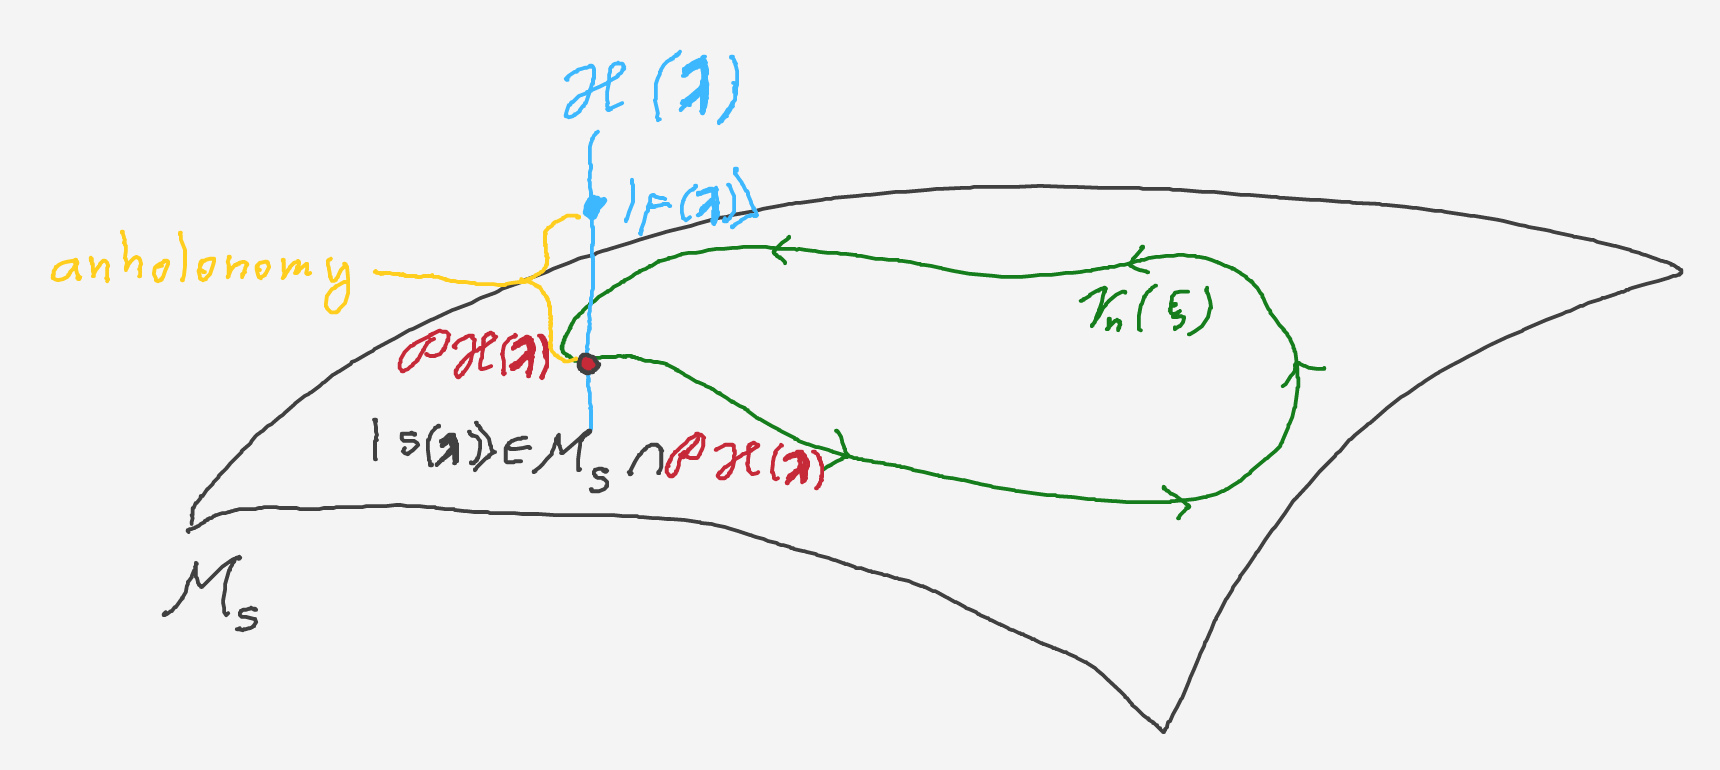 ℋ(λ)
|F(λ)⟩⟩
anholonomy
γₙ(ξ)
𝒫ℋ(λ)
|S(λ)⟩⟩ ∈ ℳ_S ∩ 𝒫ℋ(λ)
ℳ_S